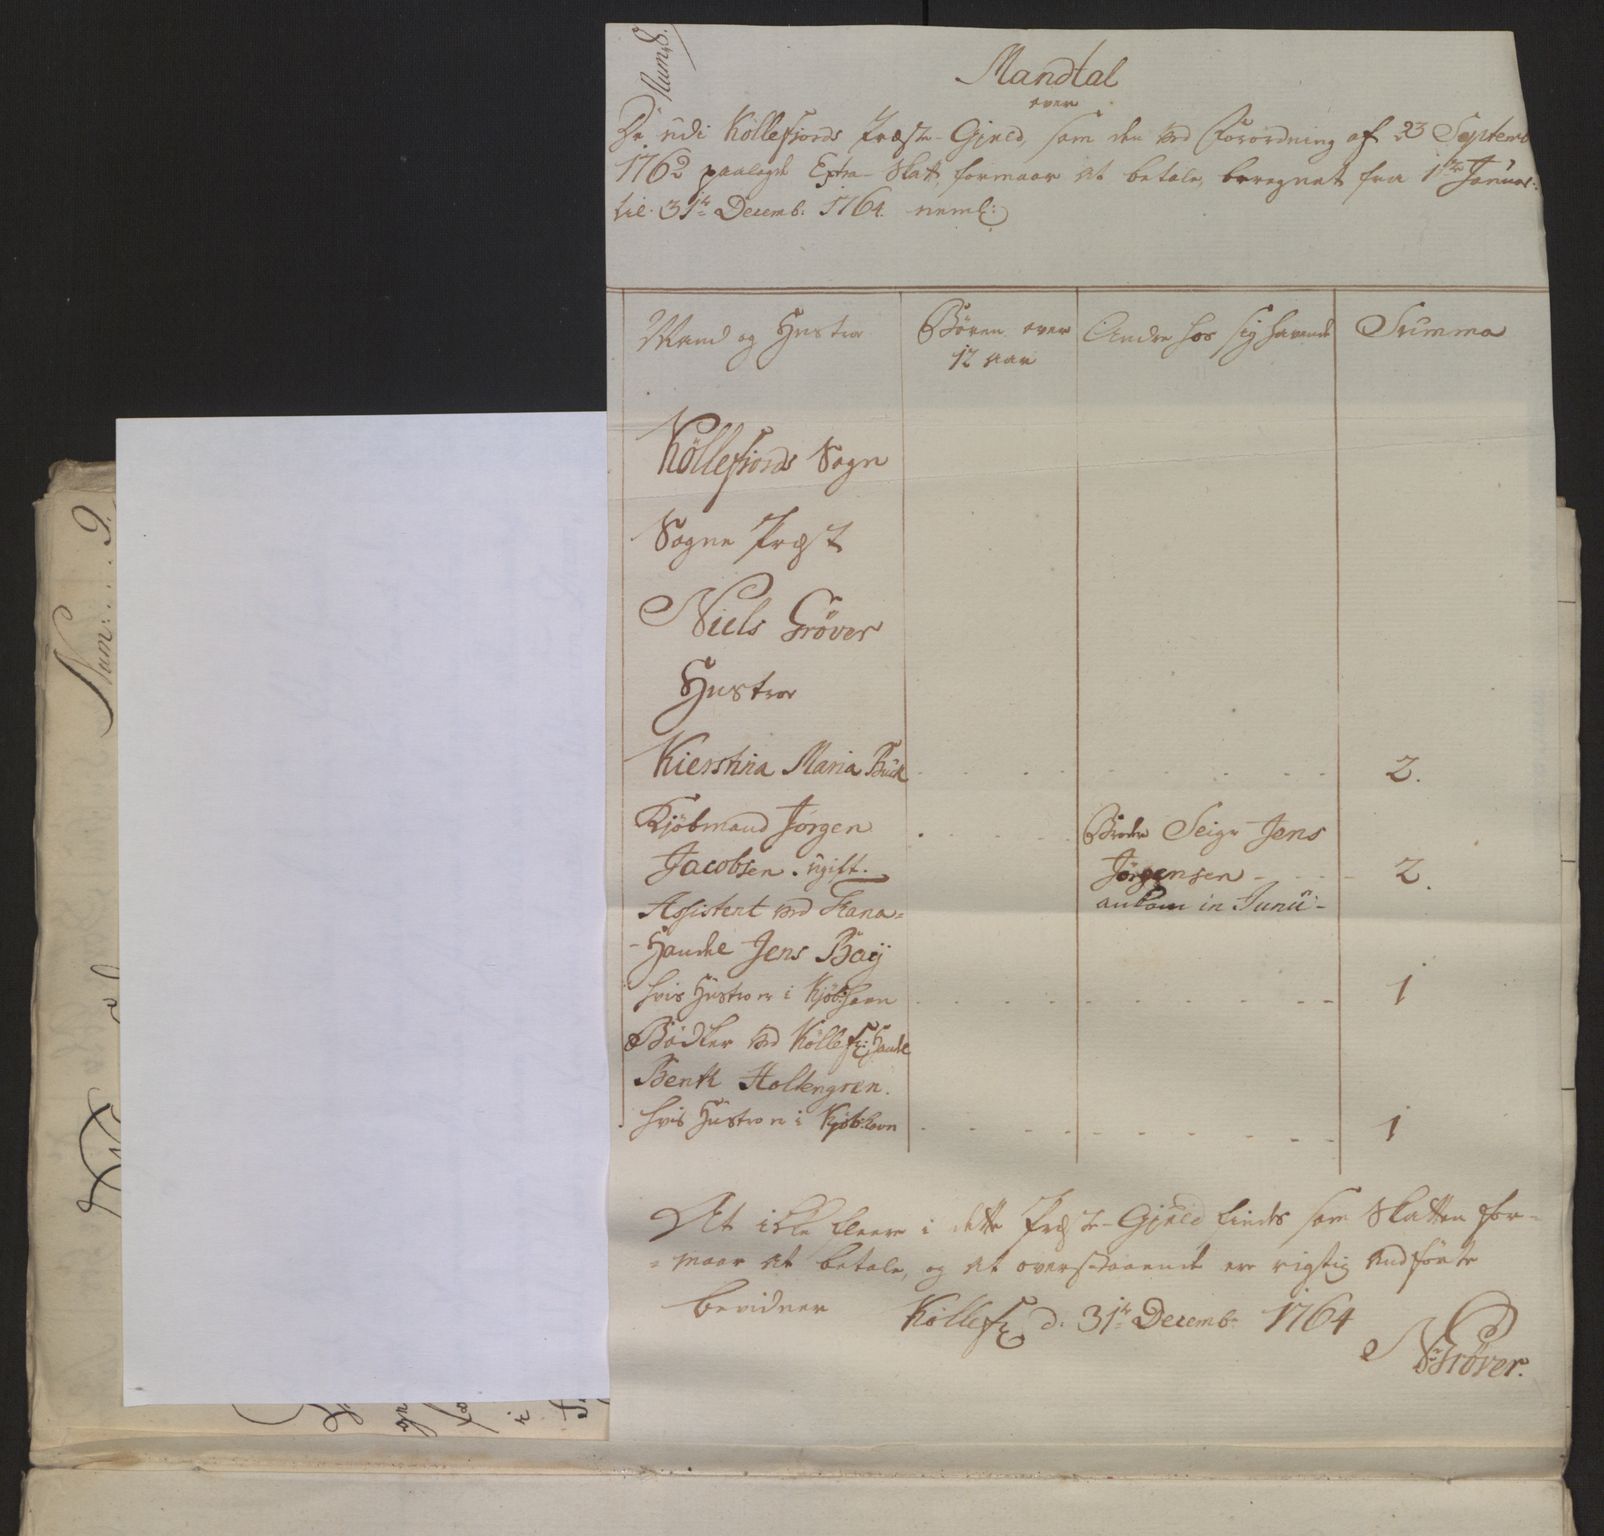 Num: 8.
Mandtal
over
De udi Köllefiords Præste-Gield, som den ved Forordning af 23 Septemb
1762 paalagde Extra-Skatt formaar at betale, beregnet fra 1te Januar:
til 31te Decemb: 1764. neml:
Mand og Hustro
Börn over
12 aar
Andre hos sig havende
Summa
Köllefiords Sogn
Sogne Præst
Niels Tröver
Hustroe
Kierstina Maria
2.
Kjöbmand Jörgen
Jacobsen. ugift.
Broder Seigr Jens
Jörgensen
ankom in Junii
2.
Assistent ved
Handel Jens Baÿ
hvis Hustro er i Kjöbhavn
1
Bödker ved Köllef: Handel
Bentt Holtengren.
hvis Hustro er i Kjöb:havn
1
At ikke fleere i dette Præste-Gield findes som Skatten for=
=maar at betale, og at overstaaende ere rigtig anförte
bevidner
Köllef: d: 31te Decemb: 1764
N Tröver.
Num: . . . 9.